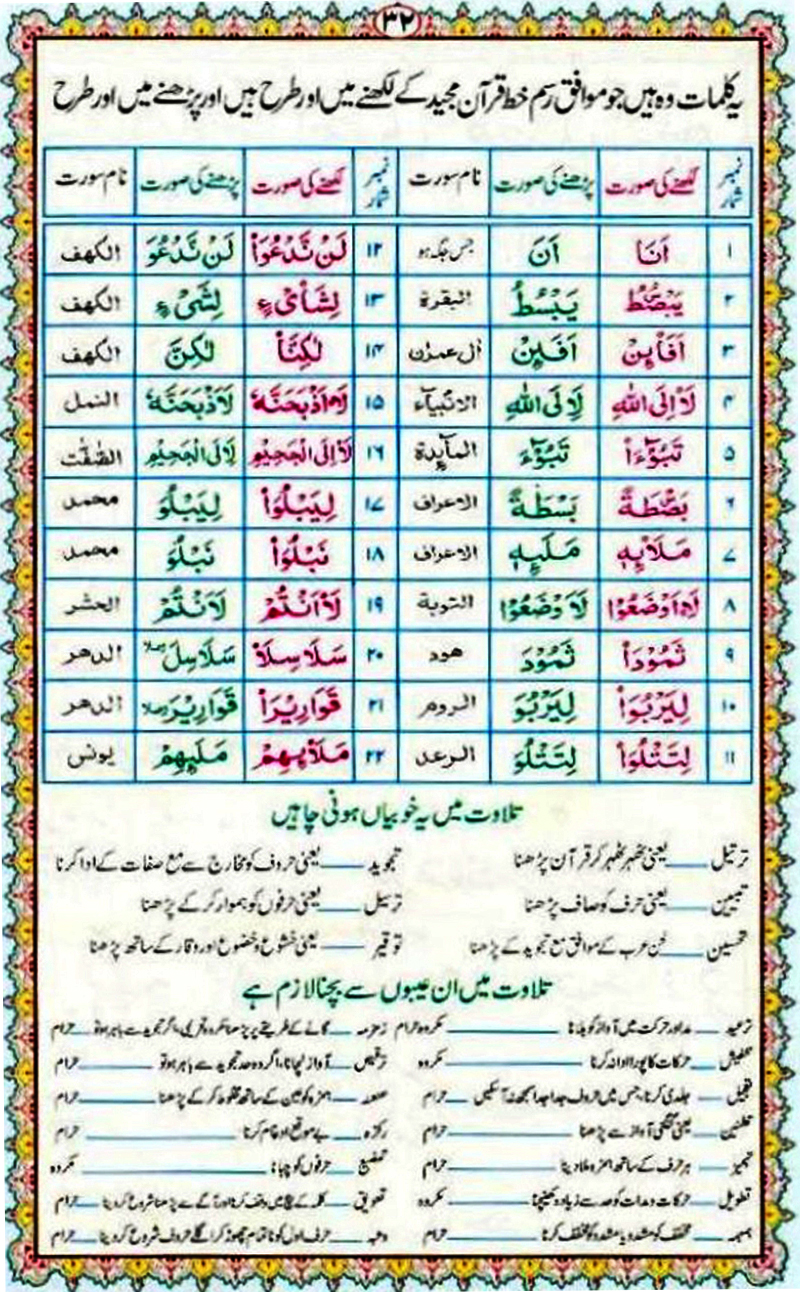 ۳۲
یہ کلمات وہ ہیں جو موافق رسم خط قرآن مجید کے لکھنے میں اور طرح ہیں اور پڑھنے میں اور طرح
نمبر شمار لکھنے کی صورت پڑھنے کی صورت نام سورت نمبر شمار لکھنے کی صورت پڑھنے کی صورت نام سورت
۱ اَنَا اَنَ جس جگہ ہو ۱۲ لَنْ نَّدْعُوَاْ لَنْ نَّدْعُوَ الکھف
۲ یَبْصُۜطُ یَبْسُطُ البقرۃ ۱۳ لِشَاْیْءٍ لِشَیْءٍ الکھف
۳ اَفَاْىِٕنْ اَفَىِٕنْ اٰل عمرٰن ۱۴ لٰكِنَّاْ لٰكِنَّ الکھف
۴ لَاْاِلَی اللّٰهِ لَاِلَی اللّٰهِ الانبیآء ۱۵ لَاۡاَذْبَحَنَّهٗ لَاَذْبَحَنَّهٗ النمل
۵ تَبُوْٓءَاْ تَبُوْٓءَ المآىِٕدۃ ۱۶ لَاْاِلَی الْجَحِیْمِ لَاِلَی الْجَحِیْمِ الصّٰٓفّٰت
۶ بَصْۜطَةً بَسْطَةً الاعراف ۱۷ لِیَبْلُوَاْ لِیَبْلُوَ محمد
۷ مَلَاْىِٕهٖ مَلَىِٕهٖ الاعراف ۱۸ نَبْلُوَاْ نَبْلُوَ محمد
۸ لَاۡاَوْضَعُوْا لَاَوْضَعُوْا التوبة ۱۹ لَاْاَنْتُمْ لَاَنْتُمْ الحشر
۹ ثَمُوْدَاْ ثَمُوْدَ ھود ۲۰ سَلَاسِلَاْ سَلَاسِلَ الدھر
۱۰ لِیَرْبُوَاْ لِیَرْبُوَ الروم ۲۱ قَوَارِیْرَاْ قَوَارِیْرَ الدھر
۱۱ لِتَتْلُوَاْ لِتَتْلُوَ الرعد ۲۲ مَلَاْىِٕهِمْ مَلَىِٕهِمْ یونس
تلاوت میں یہ خوبیاں ہونی چاہیں
ترتیل یعنی ٹھہر ٹھہر کر قرآن پڑھنا تجوید یعنی حروف کو مخارج سے مع صفات کے ادا کرنا
تبیین یعنی حرف کو صاف پڑھنا ترسیل یعنی حرفوں کو ہموار کر کے پڑھنا
تحسین لحن عرب کے موافق مع تجوید کے پڑھنا توقیر یعنی خشوع و خضوع اور وقار کے ساتھ پڑھنا
تلاوت میں ان عیبوں سے بچنا لازم ہے
ترعید مد اور حرکت میں آواز کو ہلانا مکروہ حرام زمزمہ گانے کے طریقے پر پڑھنا مکروہ تحریمی، اگر تجوید سے باہر ہو تو حرام
حرکات کا پورا ادا نہ کرنا مکروہ ترقیص آواز نچانا، اگر وہ حد تجوید سے باہر ہو تو حرام
تعجیل جلدی کرنا، جس میں حروف جدا جدا سمجھ نہ آسکیں حرام عنعنہ ہمزہ کو عین کے ساتھ مخلوط کر کے پڑھنا حرام
یعنی گنگنی آواز سے پڑھنا حرام بے موقع ادغام کرنا حرام
ہر حرف کے ساتھ ہمزہ ملا دینا حرام تمضیغ حرفوں کو چبانا مکروہ
تطویل حرکات و مدات کو حد سے زیادہ کھینچنا مکروہ تعویق کلمہ کے بیچ میں وقف کرنا اور آگے سے پڑھنا شروع کر دینا حرام
ہمہمہ مخفف کو مشدد یا مشدد کو مخفف کرنا حرام وثبہ حرف اول کو ناتمام چھوڑ کر اگلے حروف شروع کر دینا حرام